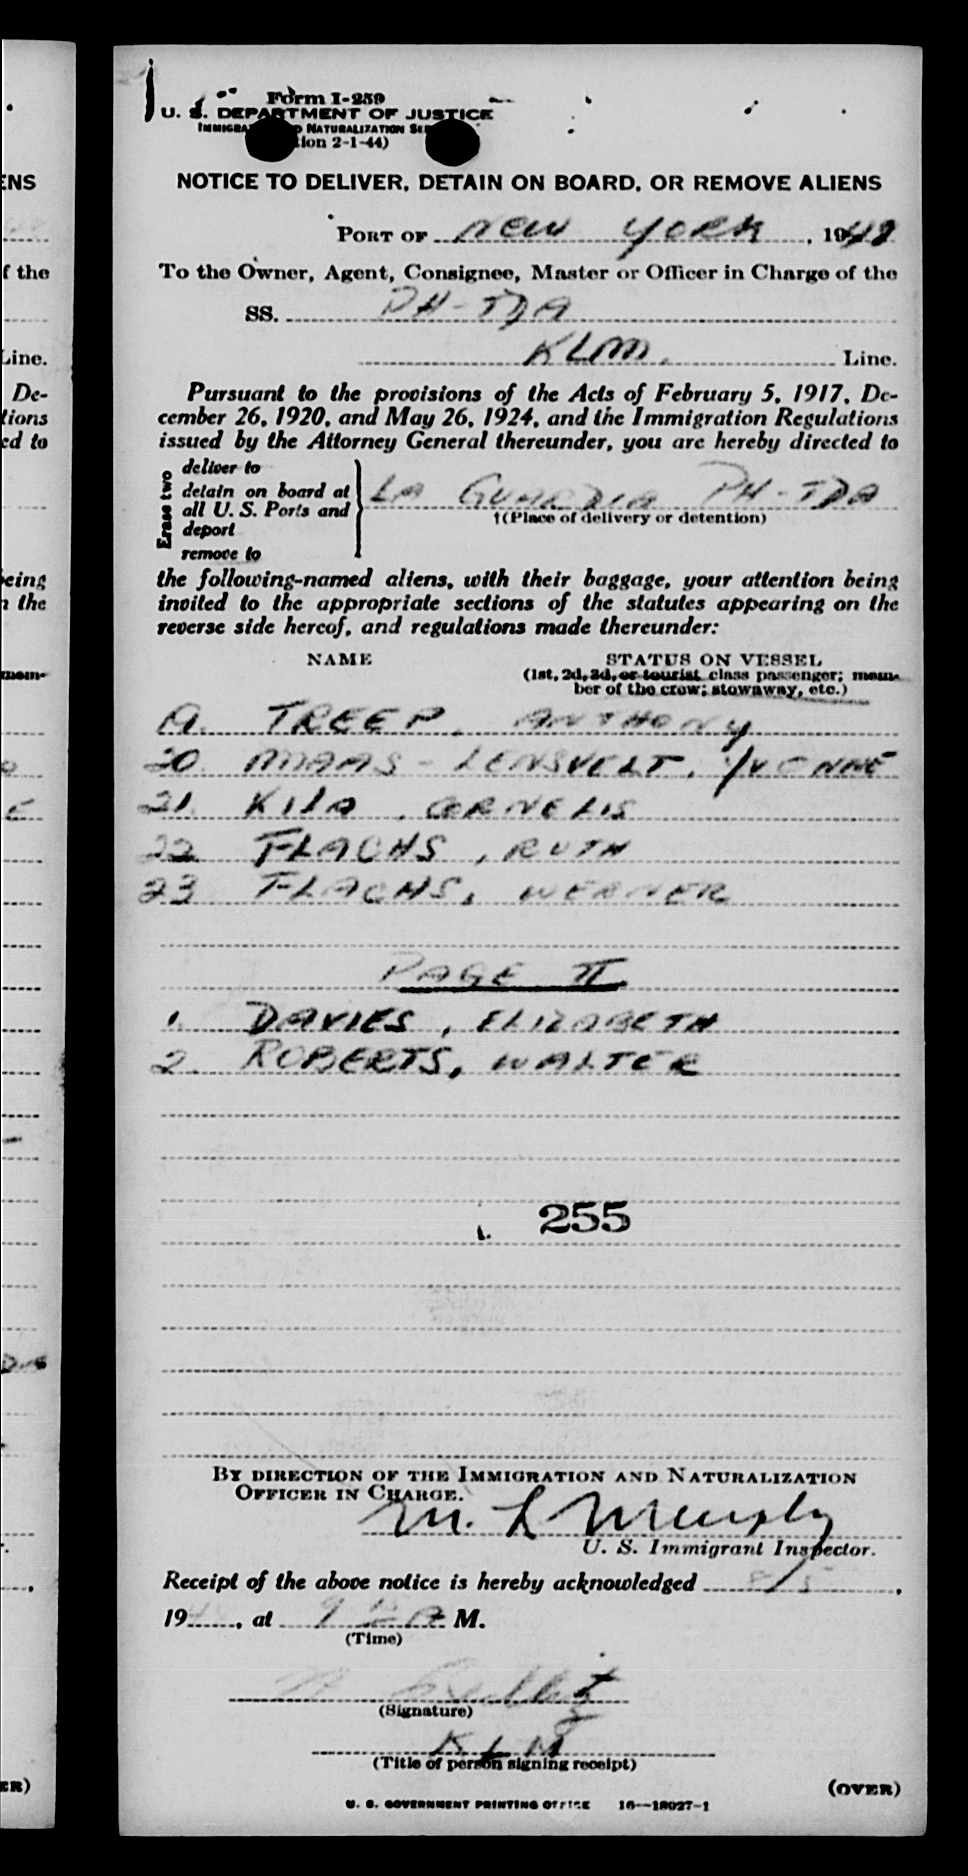 Form I-259
U. S. DEPARTMENT OF JUSTICE
IMMIGRA D NATURALIZATION SE
ion 2-1-44)
NOTICE TO DELIVER, DETAIN ON BOARD, OR REMOVE ALIENS
PORT OF NEW YORK, 1948
To the Owner, Agent, Consignee, Master or Officer in Charge of the
SS. PH-TDA
KLM. Line.
Pursuant to the provisions of the Acts of February 5, 1917, De-
cember 26, 1920, and May 26, 1924, and the Immigration Regulations
issued by the Attorney General thereunder, you are hereby directed to
Erase two
deliver to
detain on board at
all U. S. Ports and
deport
remove to
LA GUARDIA PH-TDA
†(Place of delivery or detention)
the following-named aliens, with their baggage, your attention being
invited to the appropriate sections of the statutes appearing on the
reverse side hereof, and regulations made thereunder:
NAME STATUS ON VESSEL
(1st, 2d, 3d, or tourist class passenger; mem-
ber of the crew; stowaway, etc.)
TREEP, ANTHONY
20. MAAS-LENSVELT, YVONNE
21. , CORNELIS
22 FLACHS, RUTH
23 FLACHS, WERNER
PAGE II
1. DAVIES, ELIZABETH
2. ROBERTS, WALTER
255
BY DIRECTION OF THE IMMIGRATION AND NATURALIZATION
OFFICER IN CHARGE.
M. L. Murphy
U. S. Immigrant Inspector.
Receipt of the above notice is hereby acknowledged /5,
19, at A M.
(Time)
(Signature)
KLM
(Title of person signing receipt)
(OVER)
U. S. GOVERNMENT PRINTING OFFICE 16—18027-1
ENS
f the
Line.
De-
tions
ed to
being
n the
mem-
ER)